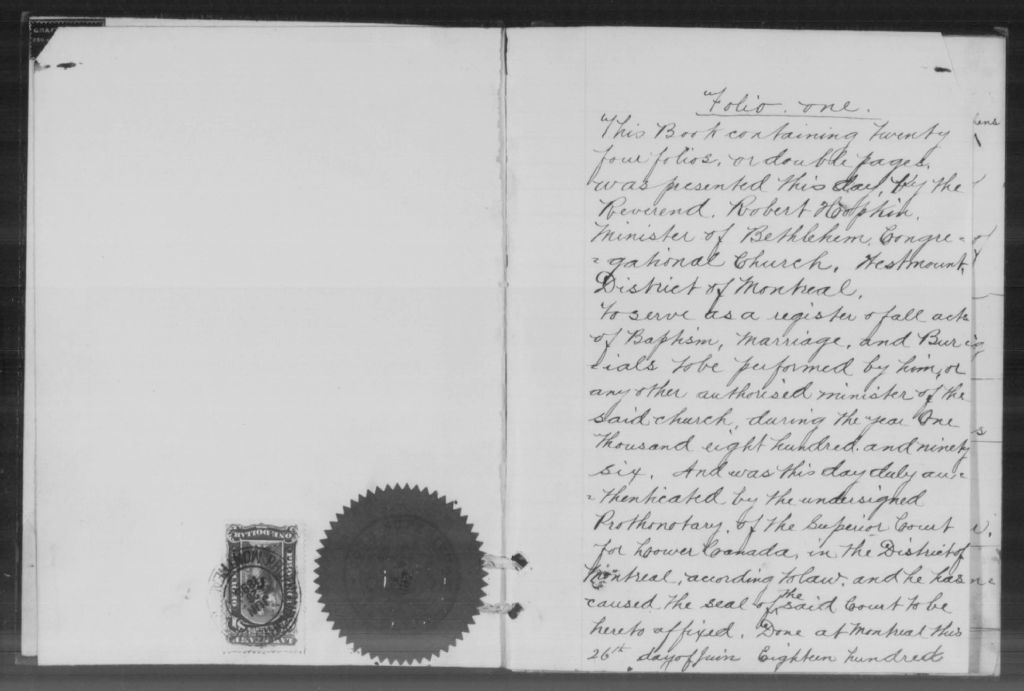 "Folio. one.
"This Book containing twenty
four folios, or double pages,
was presented this day, by the
Reverend. Robert Hopkin.
Minister of Bethlehem, Congre=
=gational Church, Westmount,
District of Montreal,
to serve as a register of all acts
of Baptism, Marriage, and Bur
=ials to be performed by him, or
any other authorised minister of the
said church, during the year One
thousand eight hundred and ninety
six. And was this day duly au=
=thenticated by the undersigned
Prothonotary, of the Superior Court
for Lower Canada, in the District of
Montreal, acording to law, and he has
caused the seal of the said Court to be
hereto affixed. Done at Montreal this
26th day of Juin Eighteen hundred
ONE DOLLAR